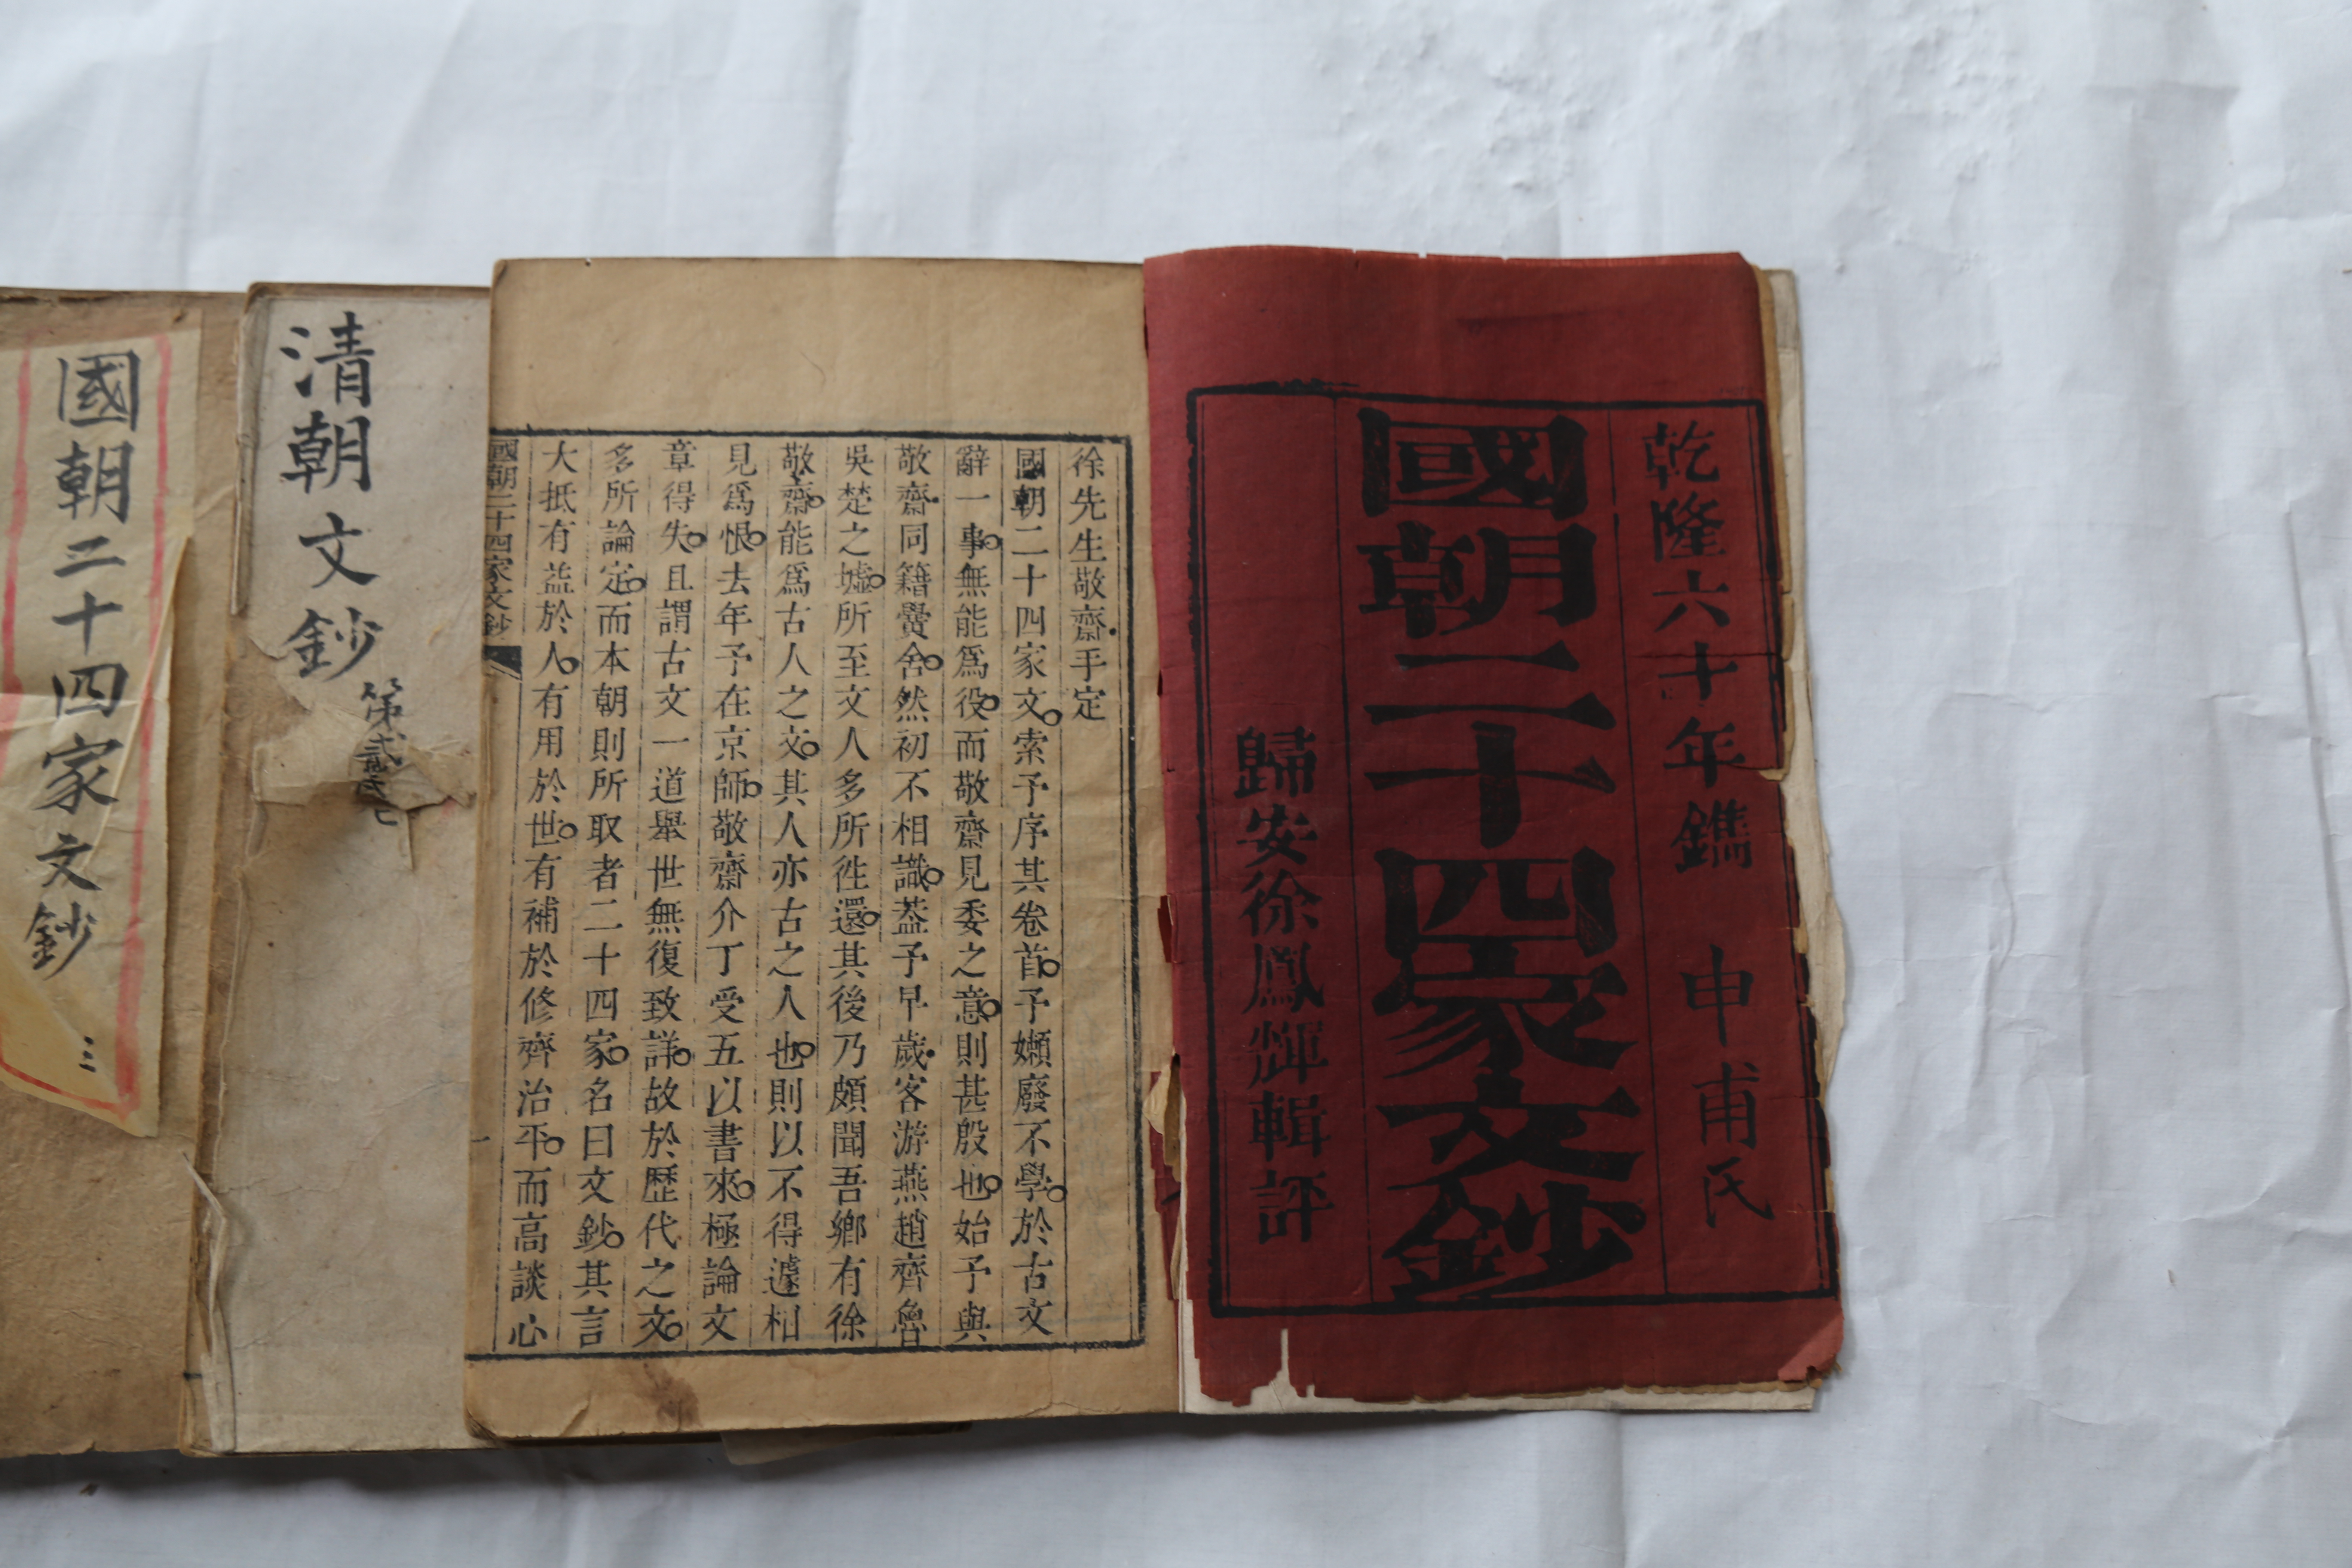 乾隆六十年鐫　申甫氏
國朝二十四家文鈔
歸安徐鳳輝輯評
徐先生敬齋手定
國朝二十四家文索予序其卷首予嬾廢不學於古文
辭一事無能爲役而敬齋見委之意則甚殷也始予與
敬齋同籍黌舍然初不相識葢予早歲客游燕趙齊魯
吳楚之墟所至文人多所徃還其後乃頗聞吾鄉有徐
敬齋能爲古人之文其人亦古之人也則以不得遽相
見爲恨去年予在京師敬齋介丁受五以書來極論文
章得失且謂古文一道舉世無復致詳故於歷代之文
多所論定而本朝則所取者二十四家名曰文鈔其言
大抵有益於人有用於世有補於修齊治平而高談心
國朝二十四家文鈔
一
清朝文鈔
第貳
國朝二十四家文鈔
三